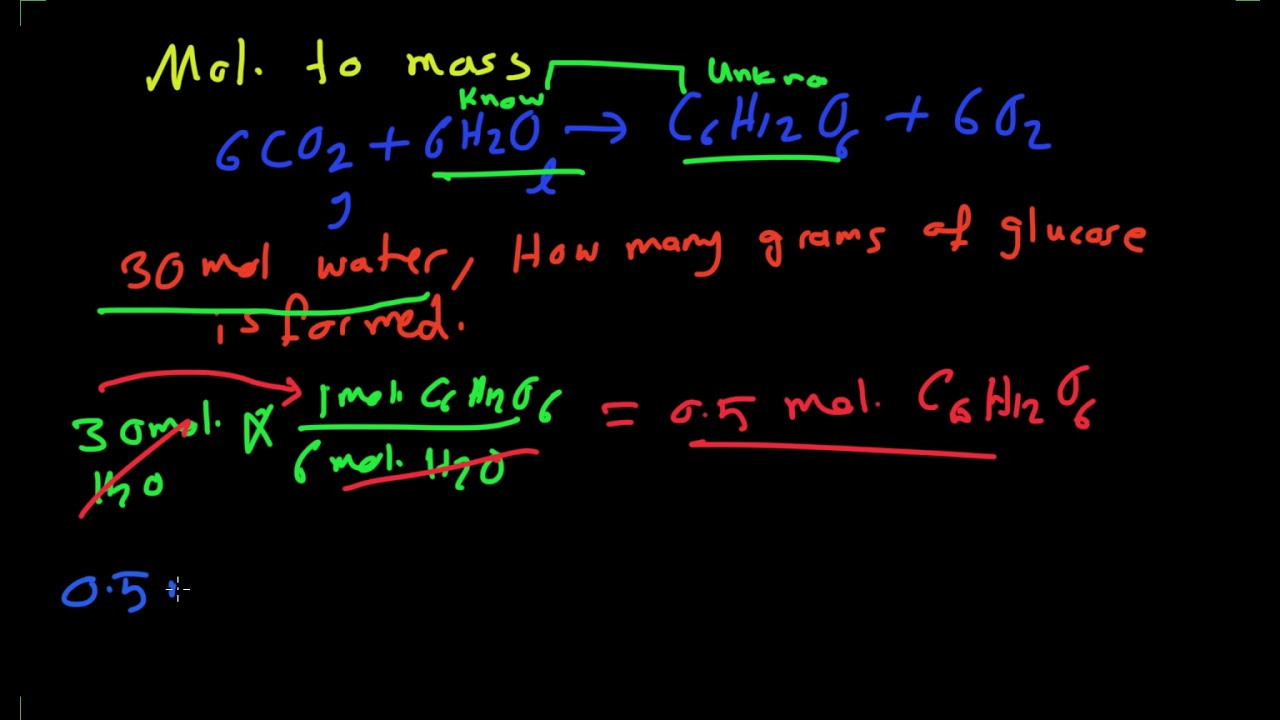 Mol. to mass
Know Unkno
6CO2 + 6H2O → C6H12O6 + 6O2
l
30 mol water, How many grams of glucose
is formed.
30 mol. H2O × 1 mol. C6H12O6 / 6 mol. H2O = 0.5 mol. C6H12O6
0.5